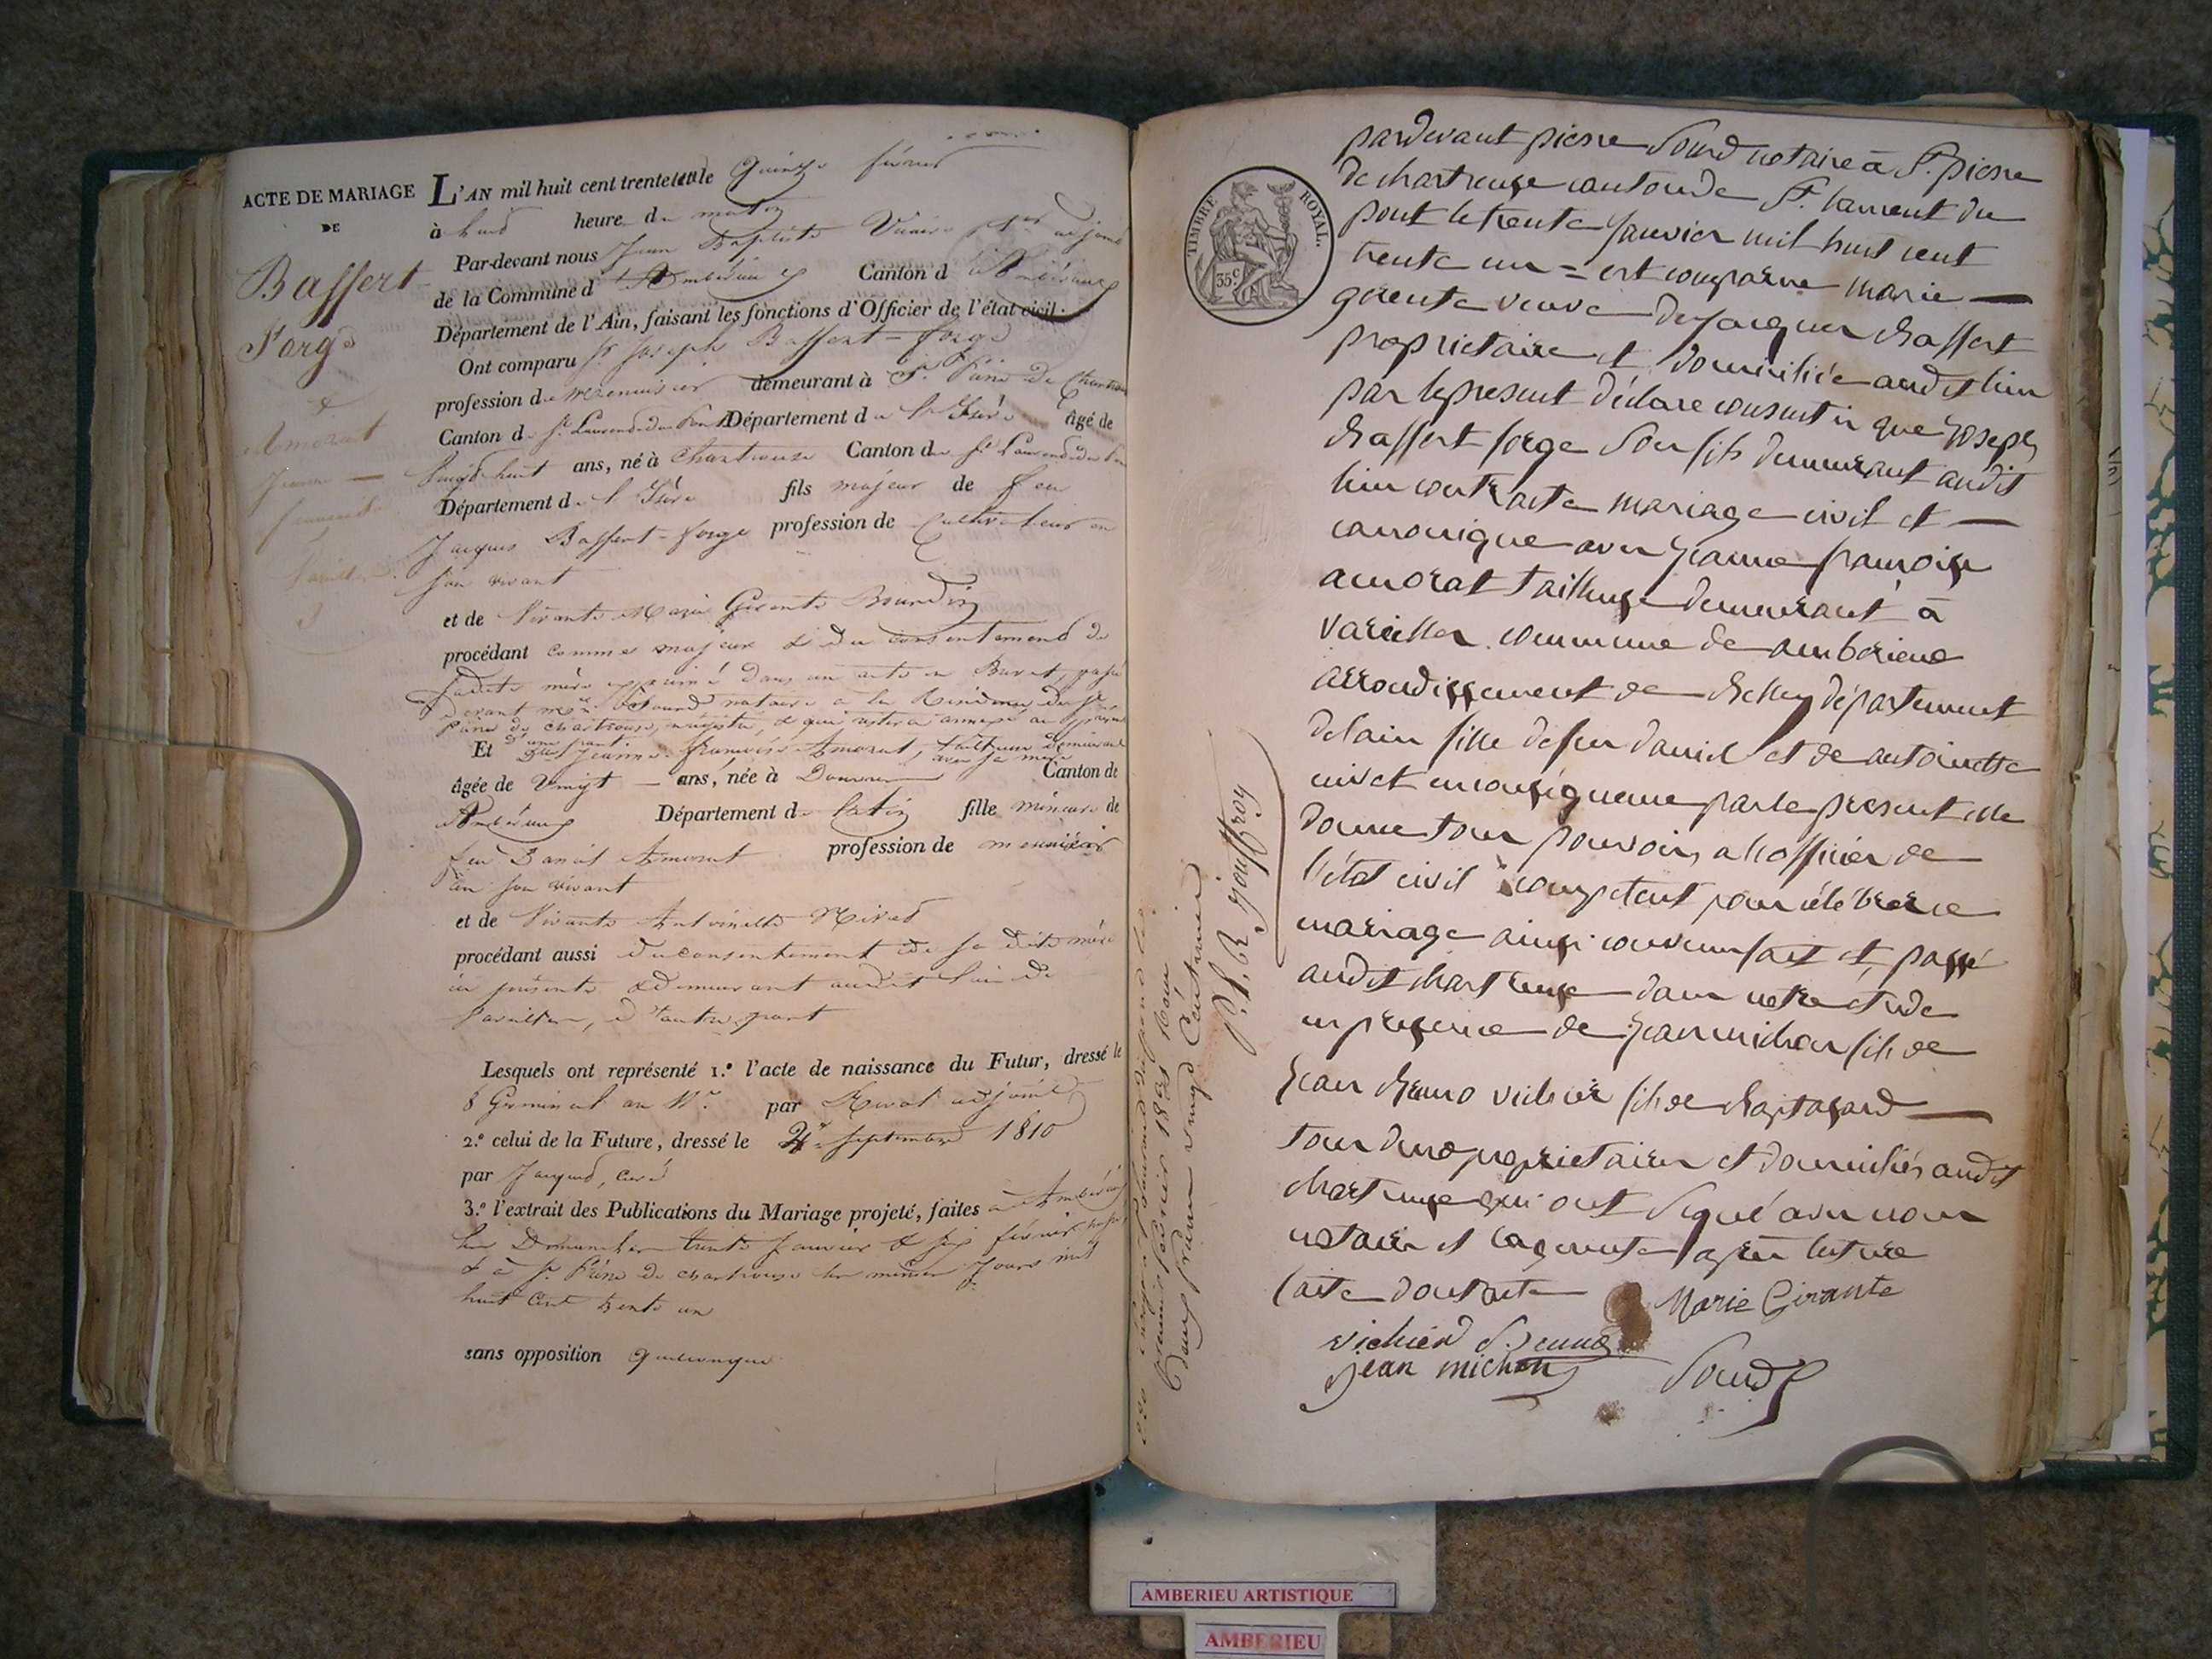 ACTE DE MARIAGE
DE
Baffert
Forge
&
Amorat
Jeanne
L'AN mil huit cent trente le quinze février
à huit heure du matin
Par-devant nous Jean Baptiste adjoint
de la Commune d'Ambérieux Canton d'Ambérieux
Département de l'Ain, faisant les fonctions d'Officier de l'état civil.
Ont comparu Sr Joseph Baffert-forge
profession de menuisier demeurant à St. Pierre de Chartreuse
Canton de St Laurend du Pont Département de l'Isère âgé de
vingt huit ans, né à Chartreuse Canton de St Laurend du Pont
Département de l'Isère fils majeur de feu
Jacques Baffert-forge profession de Cultivateur en
son vivant
et de Vivante Marie Gerente Bourdin
procédant comme majeur & du consentement de
sadite mère exprimé dans un acte en Brevet, passé
devant me Sourd notaire à la Résidence de St
Pierre de Chartreuse, enregistré, & qui restera annexé au présent
d'une part
Et Dlle Jeanne françoise Amorat, tailleuse demeurant
avec sa mère
âgée de Vingt ans, née à Douvres Canton de
Ambérieux Département de l'Ain fille mineure de
feu Daniel Amorat profession de menuisier
en son vivant
et de Vivante Antoinette Nivet
procédant aussi du consentement de sa dite mère
ici présente & demeurant audit lieu de
Vareilles, d'autre part
Lesquels ont représenté 1.° l'acte de naissance du Futur, dressé le
8 Germinal an 11e par Rivat adjoint
2.° celui de la Future, dressé le 4 septembre 1810
par Jacquet, curé
3.° l'extrait des Publications du Mariage projeté, faites à Ambérieux
les Dimanches trente janvier & six février
& à St Pierre de Chartreuse les mêmes jours mil
huit Cent trente un
sans opposition quelconque
TIMBRE ROYAL.
35c
pardevant pierre Sourd notaire à St. pierre
de chartreuse canton de St. laurent du
pont le trente janvier mil huit cent
trente un = est comparue marie
gerente veuve de jacques baffert
propriétaire et domiciliée audit lieu
par le present déclare consentir que joseph
baffert forge son fils demeurant audit
lieu contracte mariage civil et
canonique avec jeanne françoise
amorat tailleuse demeurant à
vareilles commune de amberieux
arrondissement de belley département
de lain fille de feu daniel et de antoinette
nivet en conséquence par le present elle
donne tous pouvoirs a lofficier de
l'état civil competent pour célébrer ce
mariage ainsi convenu fait et passé
audit chartreuse dans notre etude
en presence de jean michon fils de
jean bruno vichier fils de baptasard
tous deux propriétaires et domiciliés audit
chartreuse qui ont signé avec nous
notaire et la gerente après lecture
faite dont acte
Marie Girante
vichier
jean michon
Sourd
premier février 1831 Reçu
deux francs vingt Centimes
jouffroy
AMBERIEU ARTISTIQUE
AMBERIEU